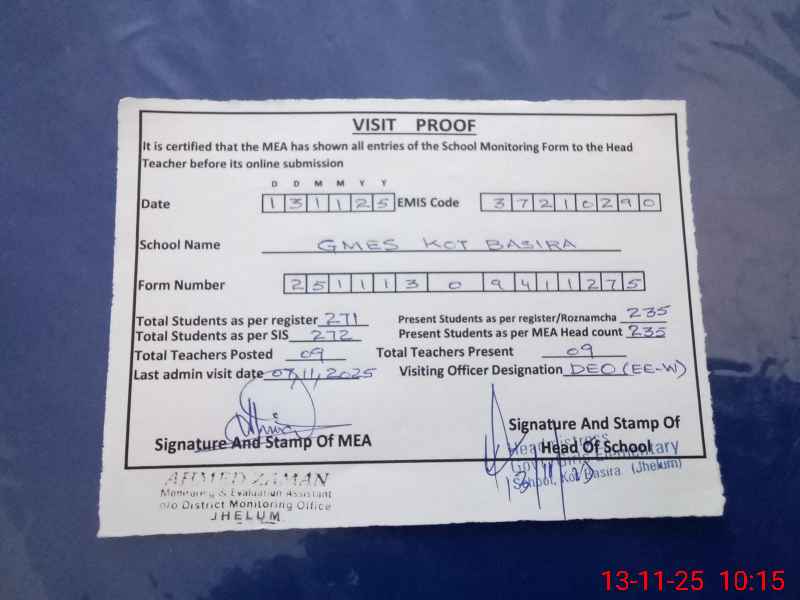 VISIT PROOF
It is certified that the MEA has shown all entries of the School Monitoring Form to the Head
Teacher before its online submission
D D M M Y Y
Date 1 3 1 1 2 5 EMIS Code 3 7 2 1 0 2 9 0
School Name GMES KOT BASIRA
Form Number 2 5 1 1 1 3 0 9 4 1 1 2 7 5
Total Students as per register 271 Present Students as per register/Roznamcha 235
Total Students as per SIS 272 Present Students as per MEA Head count 235
Total Teachers Posted 09 Total Teachers Present 09
Last admin visit date 07,11,2025 Visiting Officer Designation DEO (EE-W)
Signature And Stamp Of MEA
Signature And Stamp Of
Head Of School
Headmistress
Elementary
School, Kot Basira. (Jhelum)
AHMED ZAMAN
Monitoring & Evaluation Assistant
o/o District Monitoring Office
JHELUM.
13-11-25 10:15